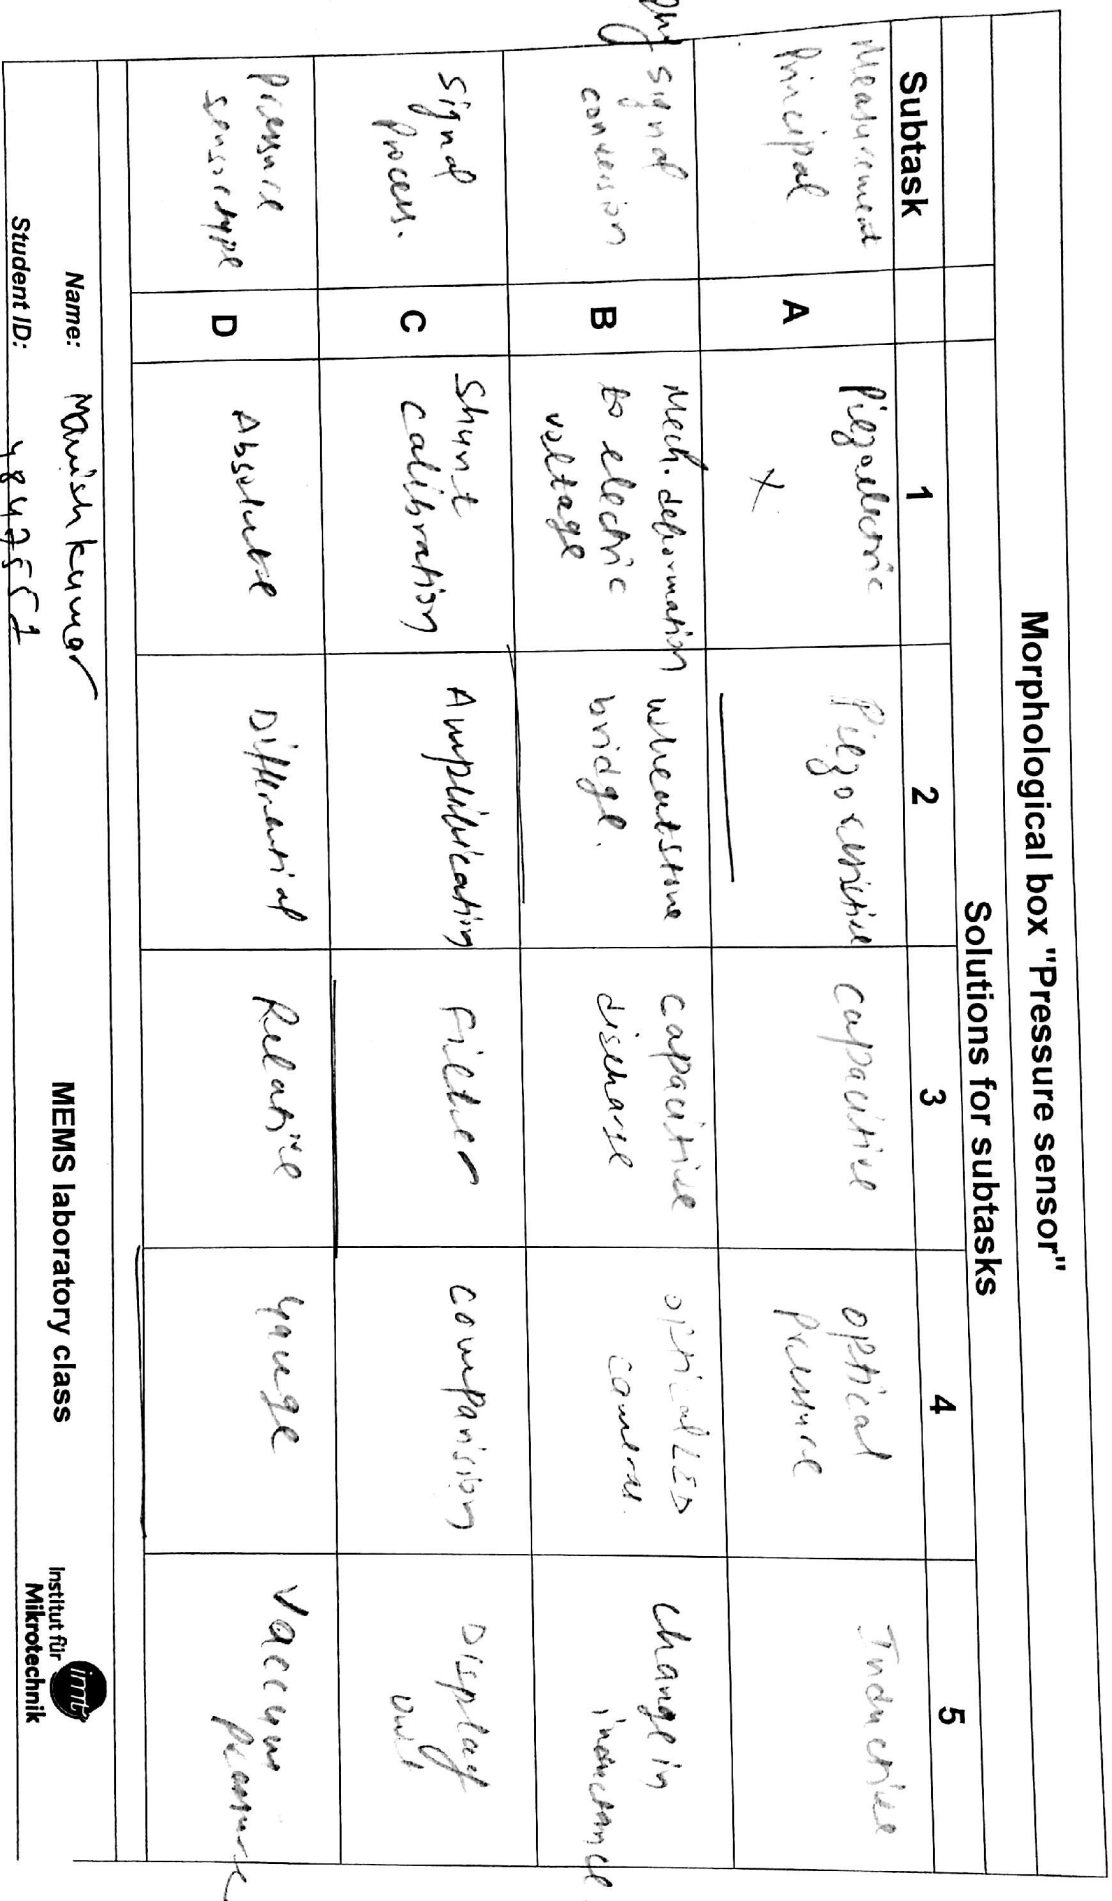 Morphological box "Pressure sensor"
Solutions for subtasks
Subtask 1 2 3 4 5
Measurement
Principal
A
Piezoelectric
X
Piezo resistive
capacitive
optical
Pressure
Inductive
Signal
conversion
B
Mech. deformation
to electric
voltage
wheatstone
bridge.
capacitive
discharge
optical LED
camera.
change in
inductance
Signal
Process.
C
Shunt
calibration
Amplification
Filter
comparision
Display
Pressure
sensor type
D
Absolute
Differential
Relative
Gauge
Vaccum
Pressure
Name: Manish kumar
Student ID: 4847551
MEMS laboratory class
imt
Institut für
Mikrotechnik